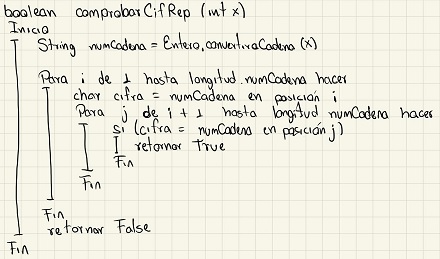 boolean comprobarCifRep (int x)
Inicio
String numCadena = Entero.convertiraCadena (x)
Para i de 1 hasta longitud.numCadena hacer
char cifra = numCadena en posición i
Para j de i + 1 hasta longitud numCadena hacer
si (cifra = numCadena en posición j)
retornar True
Fin
Fin
Fin
retornar False
Fin